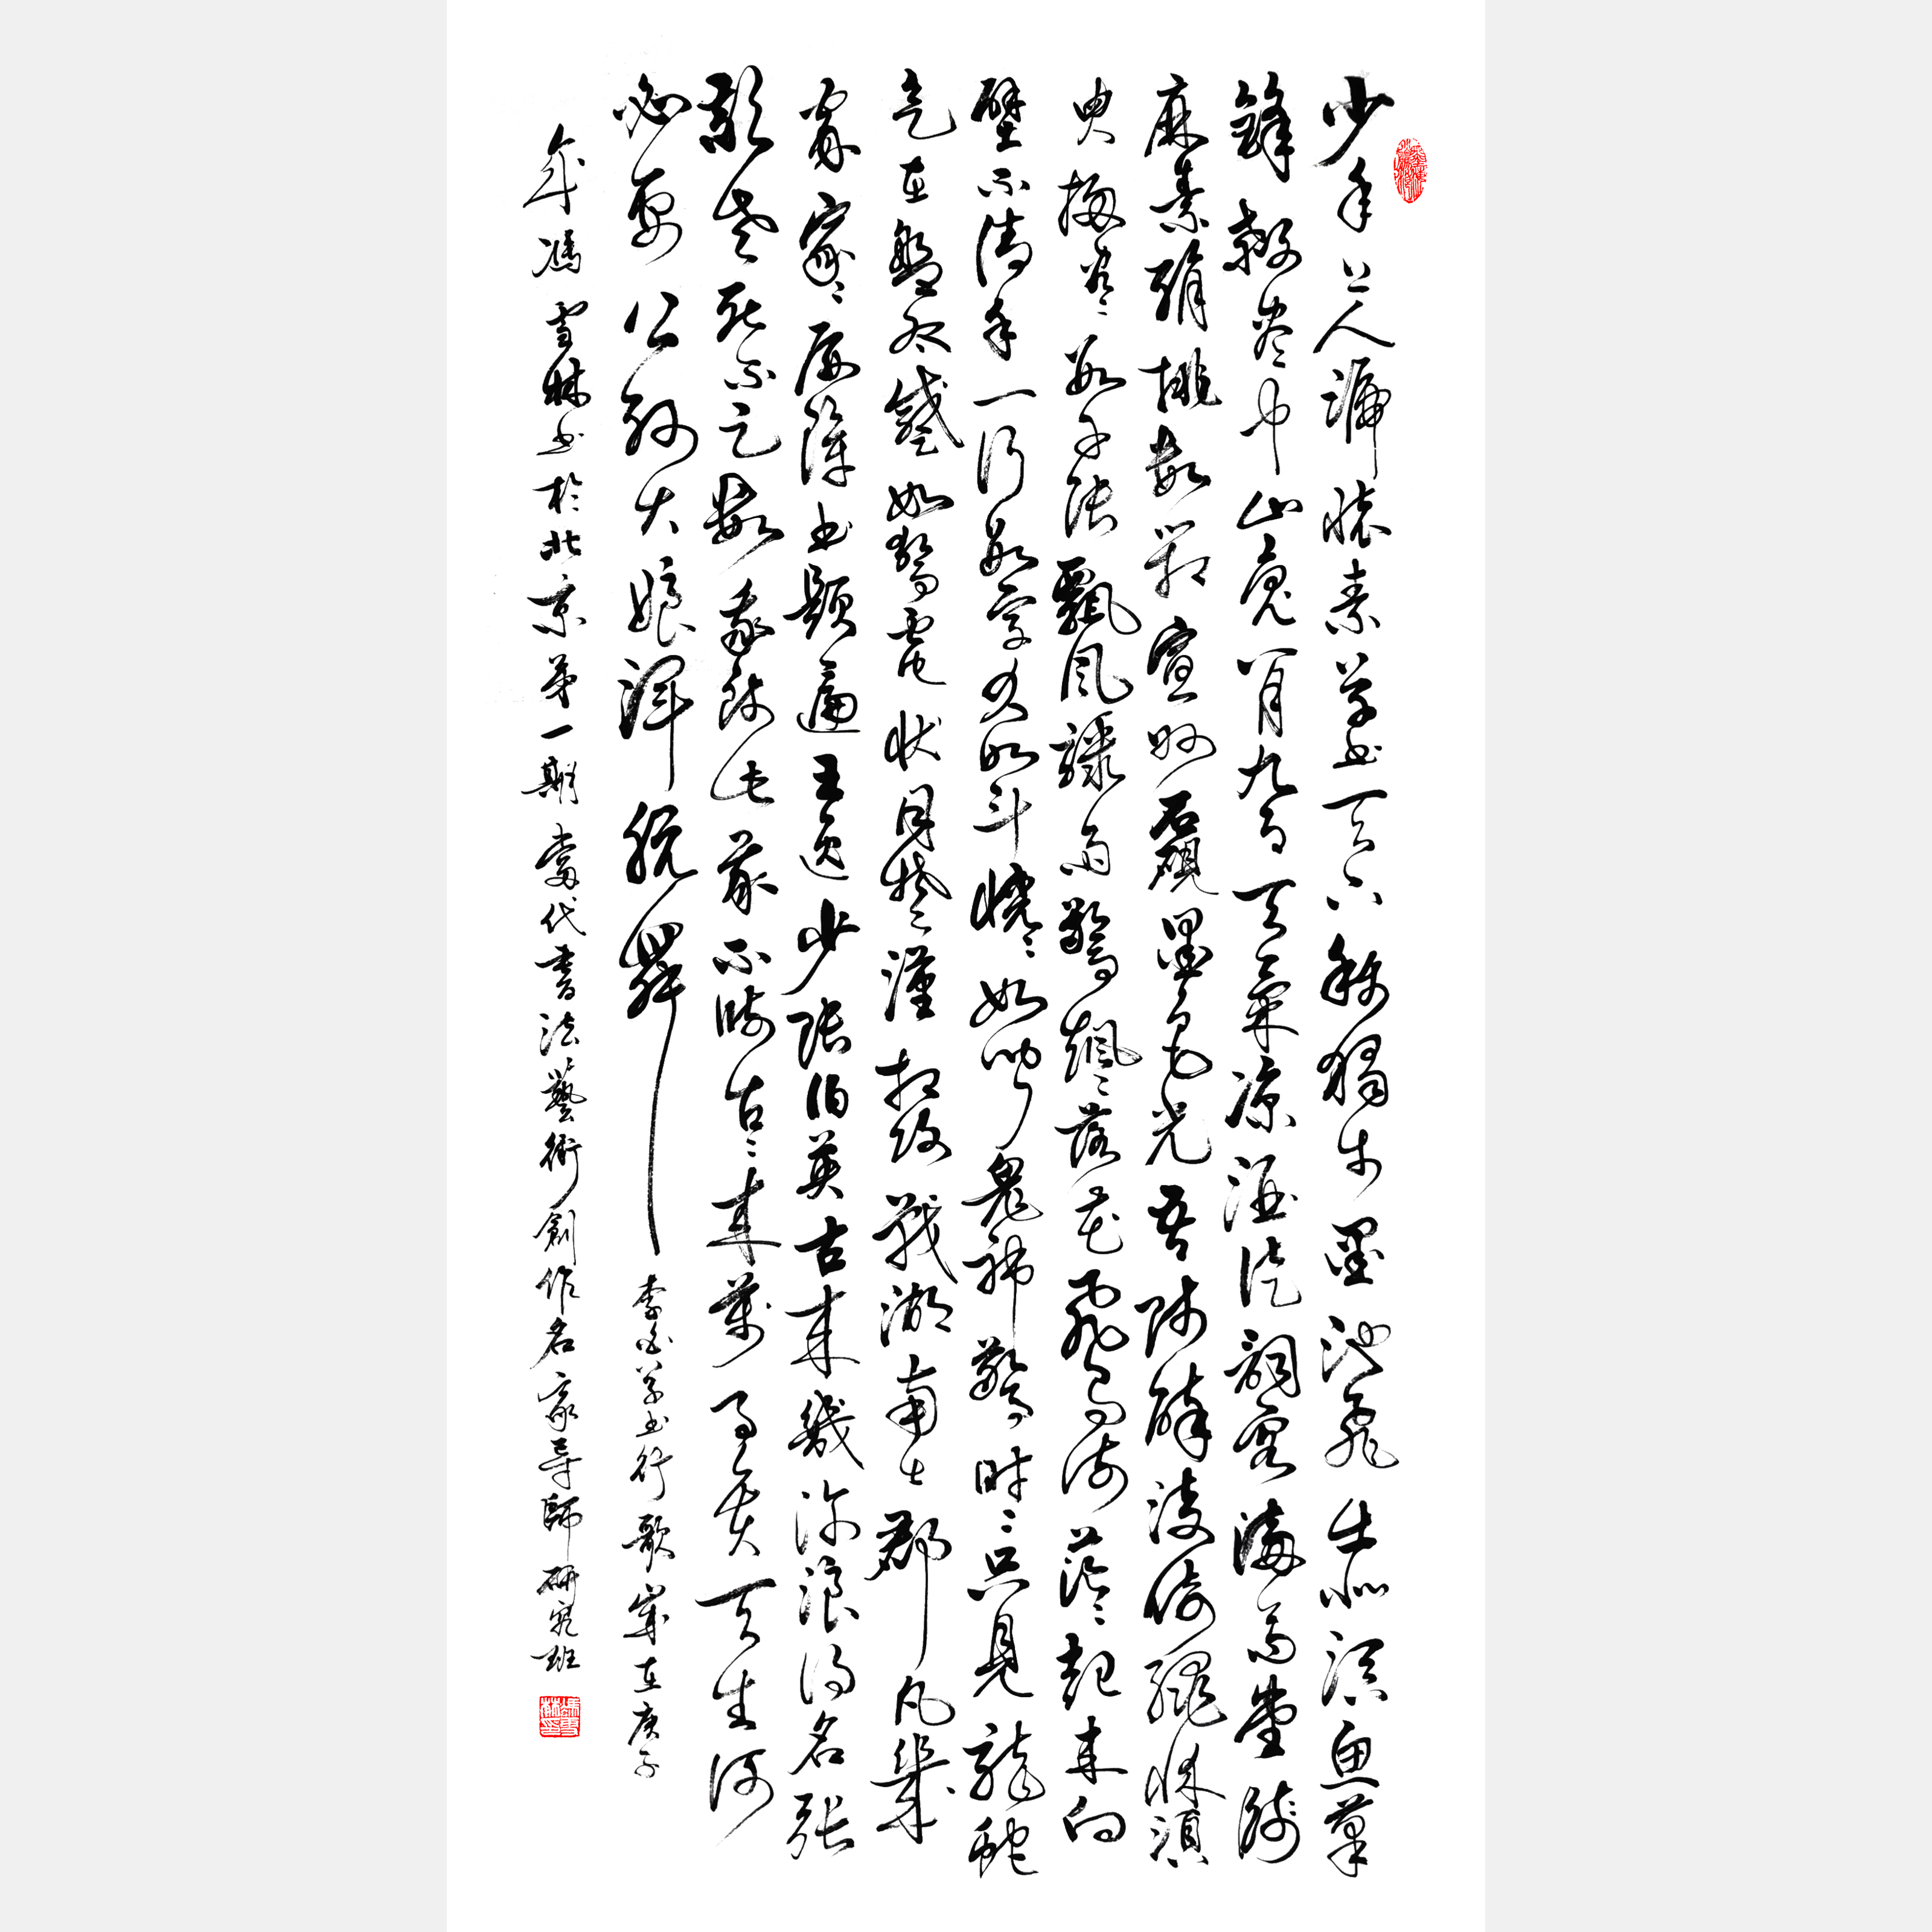 少年上人號懷素草書天下稱獨步墨池飛出北溟魚筆
鋒殺盡中山兔八月九月天氣涼酒徒詞客滿高堂箋
麻素絹排數箱宣州石硯墨色光吾師醉後倚繩床須
臾掃盡數千張飄風驟雨驚颯々落花飛雪何茫々起來向
壁不停手一行數字大如斗恍々如聞鬼神驚時々只見龍蛇
走左盤右蹙如驚電狀同楚漢相攻戰湖南七郡凡幾
家家々屏障書題遍王逸少張伯英古來幾許浪得名張
顛老死不足數我師此義不師古々來萬事貴天生何
必要公孫大娘渾脫舞 李白草書行歌歲在庚子
年馮雪林書於北京第一期當代書法藝術創作名家導師研究班